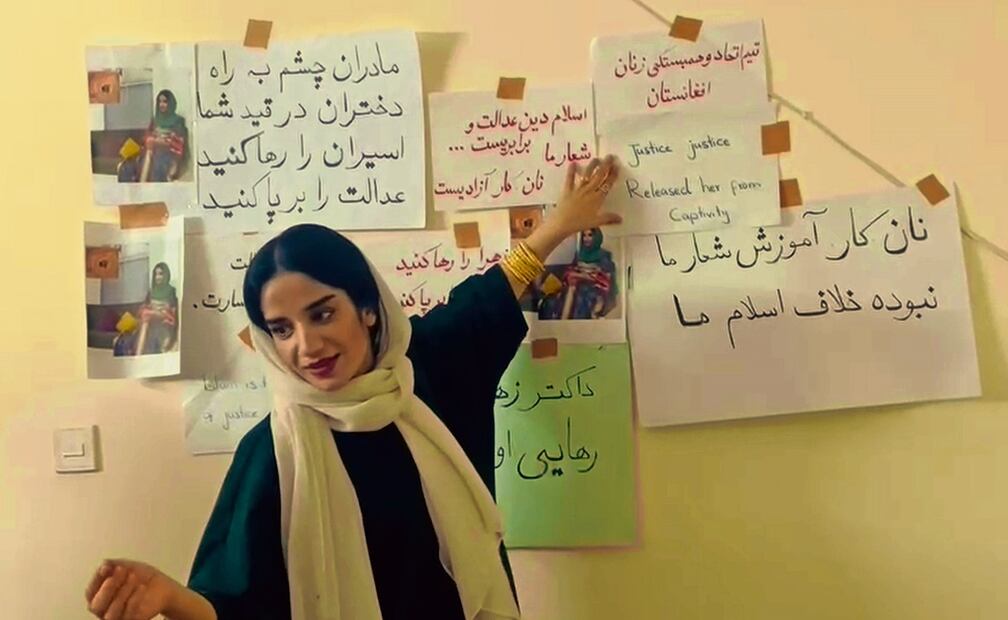 مادران چشم به راه
دختران در قید شما
اسیران را رها کنید
عدالت را بر پا کنید
اسلام دین عدالت و
برابریست ...
شعار ما
نان کار آزادیست
تیم اتحاد و همبستگی زنان
افغانستان
Justice justice
Released her from
Captivity
نان کار آموزش شعار ما
نبوده خلاف اسلام ما
زهرا را رها کنید
بر پا کنید
سارت.
Islam is
of justice
داکتر
رهایی او